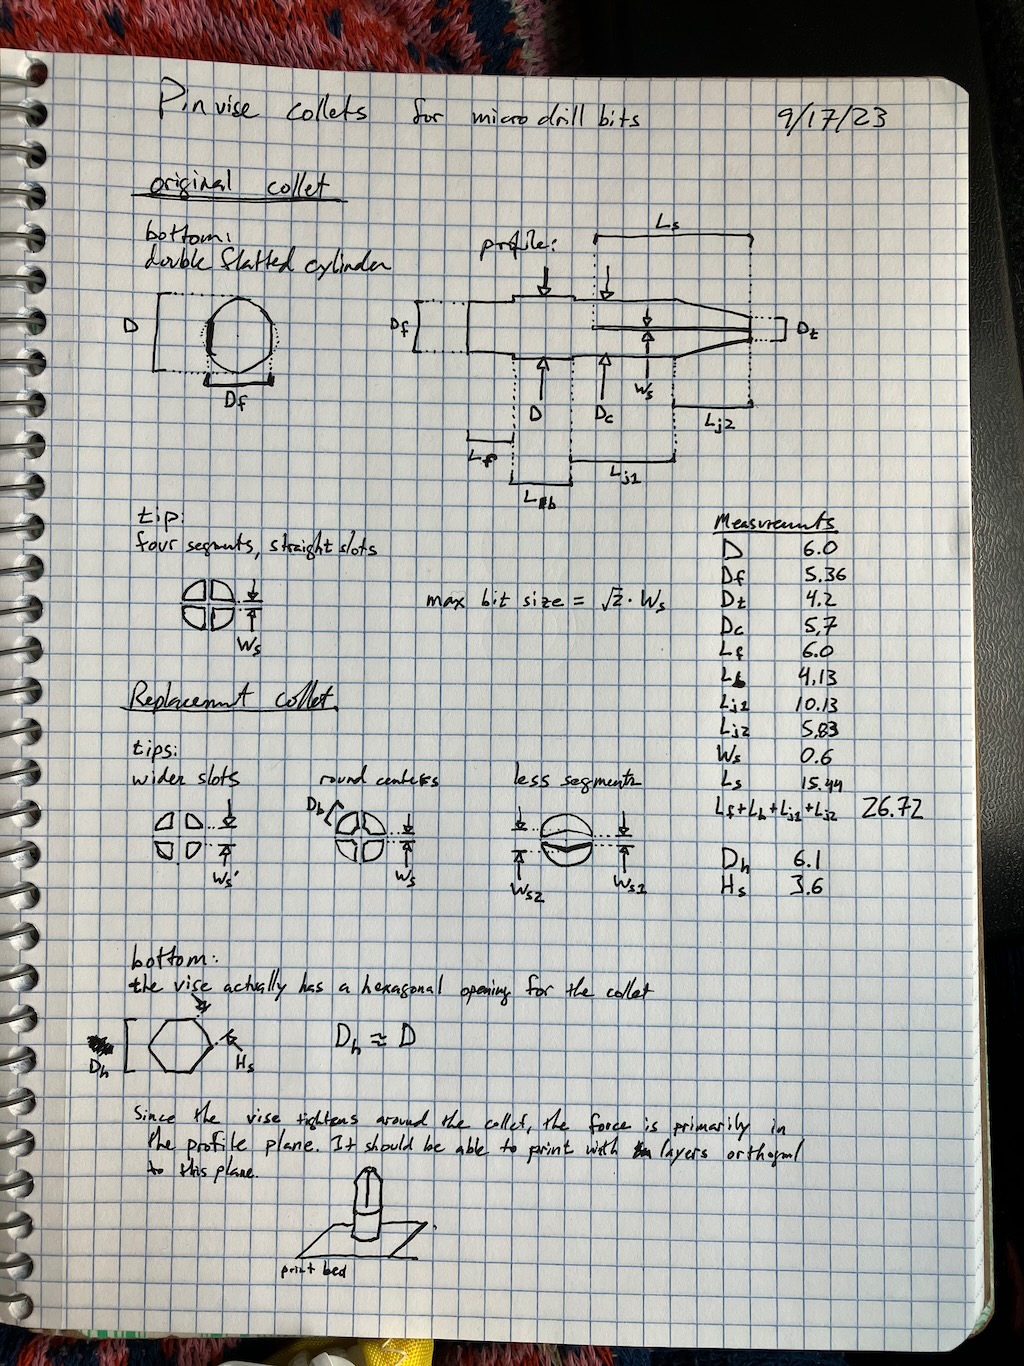 Pin vise collets for micro drill bits 9/17/23
original collet
bottom:
double flatted cylinder
D
Df
profile:
Ls
Df
Dt
D
Dc
Ws
Lj2
Lf
Lj1
Lb
tip:
four segments, straight slots
Ws
max bit size = √2 · Ws
Measurements
D 6.0
Df 5.36
Dt 4.2
Dc 5.7
Lf 6.0
Lb 4.13
Lj1 10.13
Lj2 5.83
Ws 0.6
Ls 15.44
Lf+Lb+Lj1+Lj2 26.72
Dh 6.1
Hs 3.6
Replacement collet
tips:
wider slots
Ws'
round centers
Db
Ws
less segments
Ws2
Ws1
bottom:
the vise actually has a hexagonal opening for the collet
Dh
Hs
Dh ≈ D
Since the vise tightens around the collet, the force is primarily in
the profile plane. It should be able to print with layers orthogonal
to this plane.
print bed